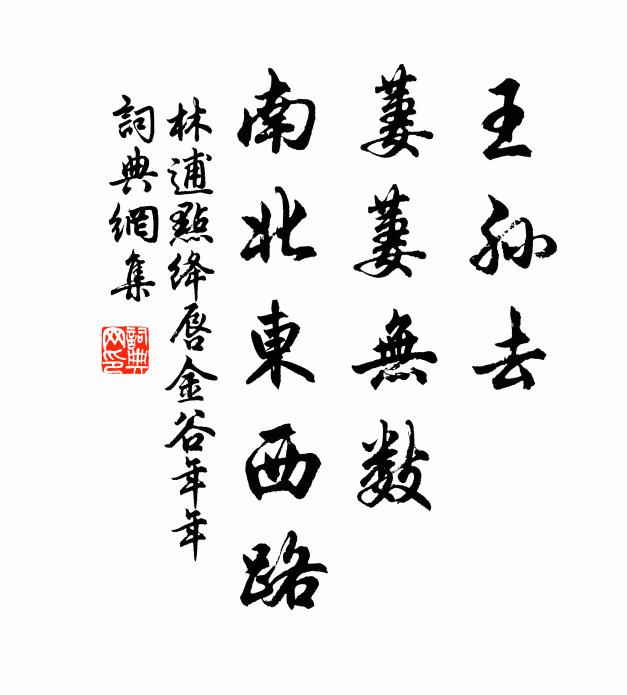 王孫去
萋萋無數
南北東西路
林逋點絳唇金谷年年
詞典網集
詞典网印